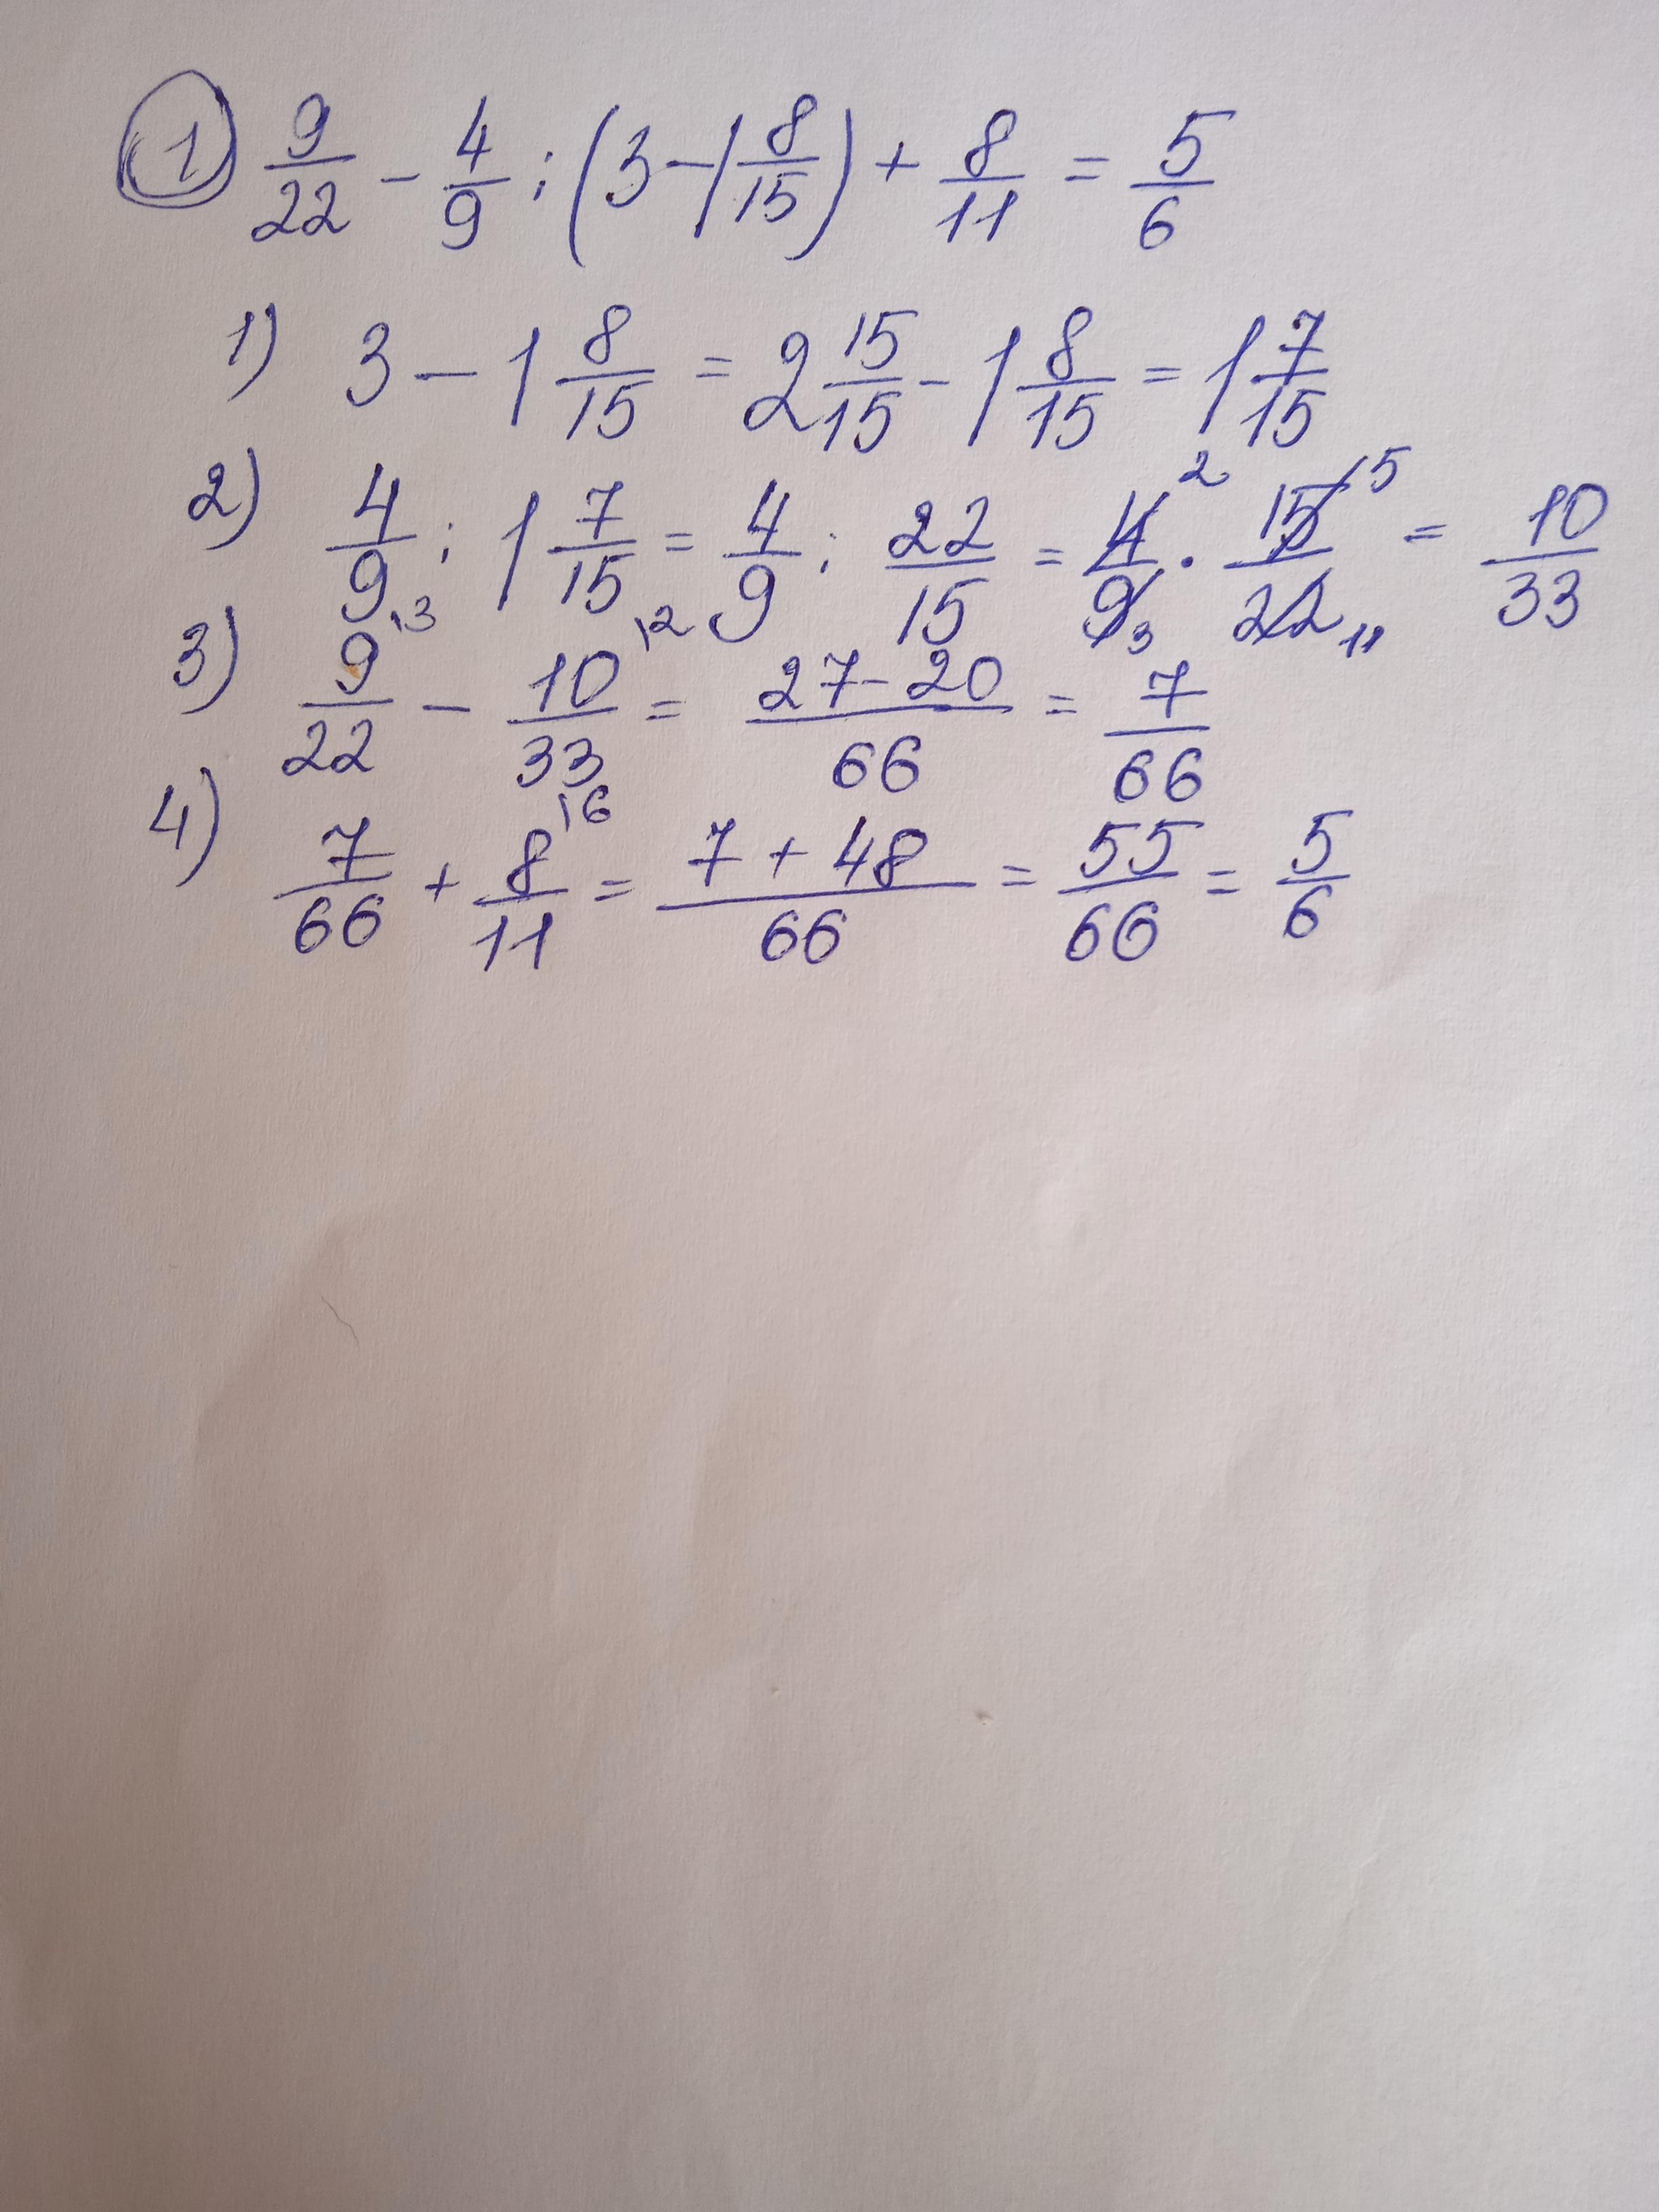 1 9/22 - 4/9 : (3 - 1 8/15) + 8/11 = 5/6
1) 3 - 1 8/15 = 2 15/15 - 1 8/15 = 1 7/15
2) 4/9 : 1 7/15 = 4/9 : 22/15 = 4 2/9 3 · 15 5/22 11 = 10/33
3) 9 \3/22 - 10 \2/33 = 27-20/66 = 7/66
4) 7/66 + 8 \6/11 = 7+48/66 = 55/66 = 5/6